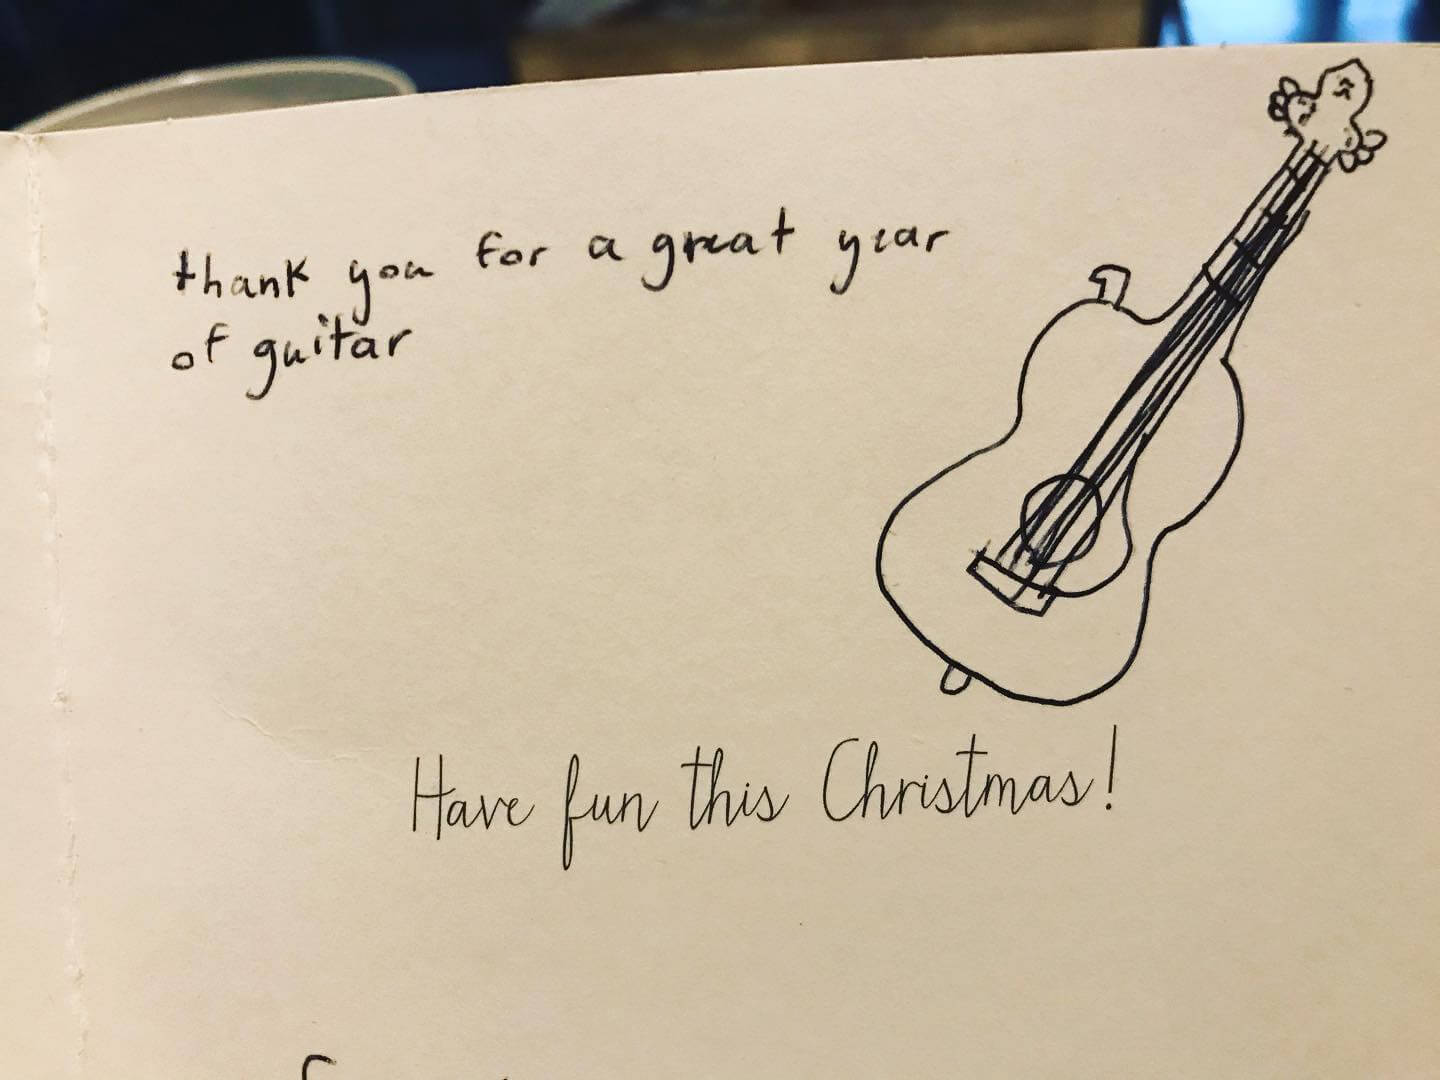 thank you for a great year
of guitar
Have fun this Christmas!